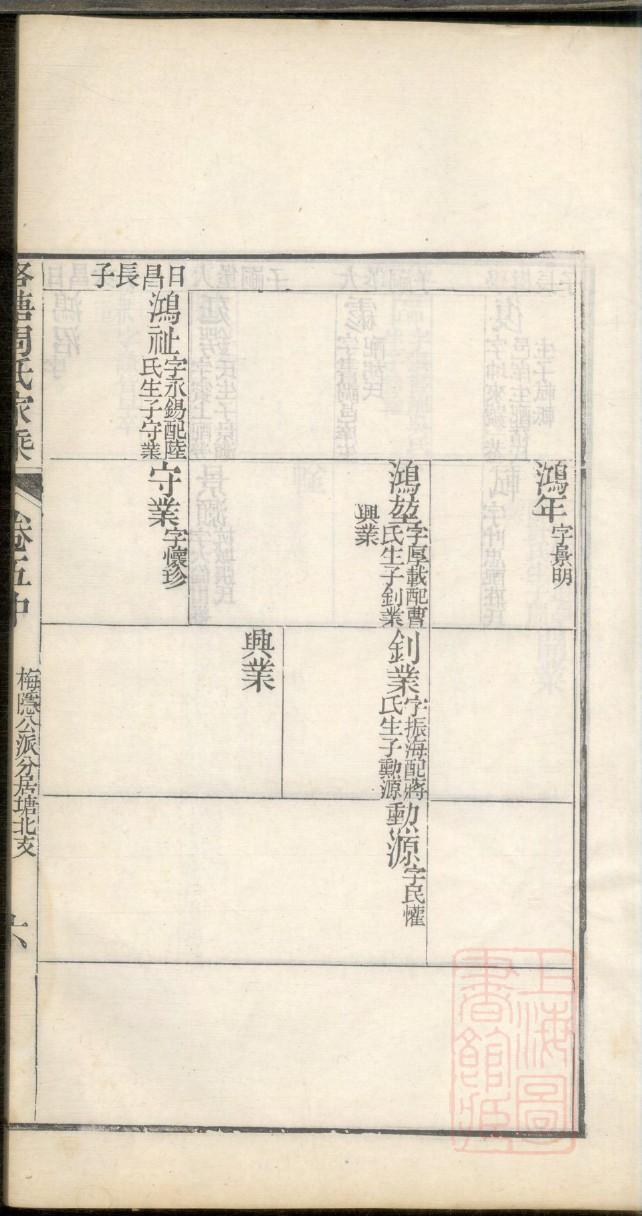 鴻年
字景明
鴻堃
字厚載配曹
氏生子釗業
興業
釗業
字振海配蔣
氏生子勳源
勳源
字民懽
興業
日昌長子
鴻祉
字永錫配陸
氏生子守業
守業
字懷珍
洛塘周氏家乘
卷五中
梅隱公派分居塘北支
六
上海圖
書館藏